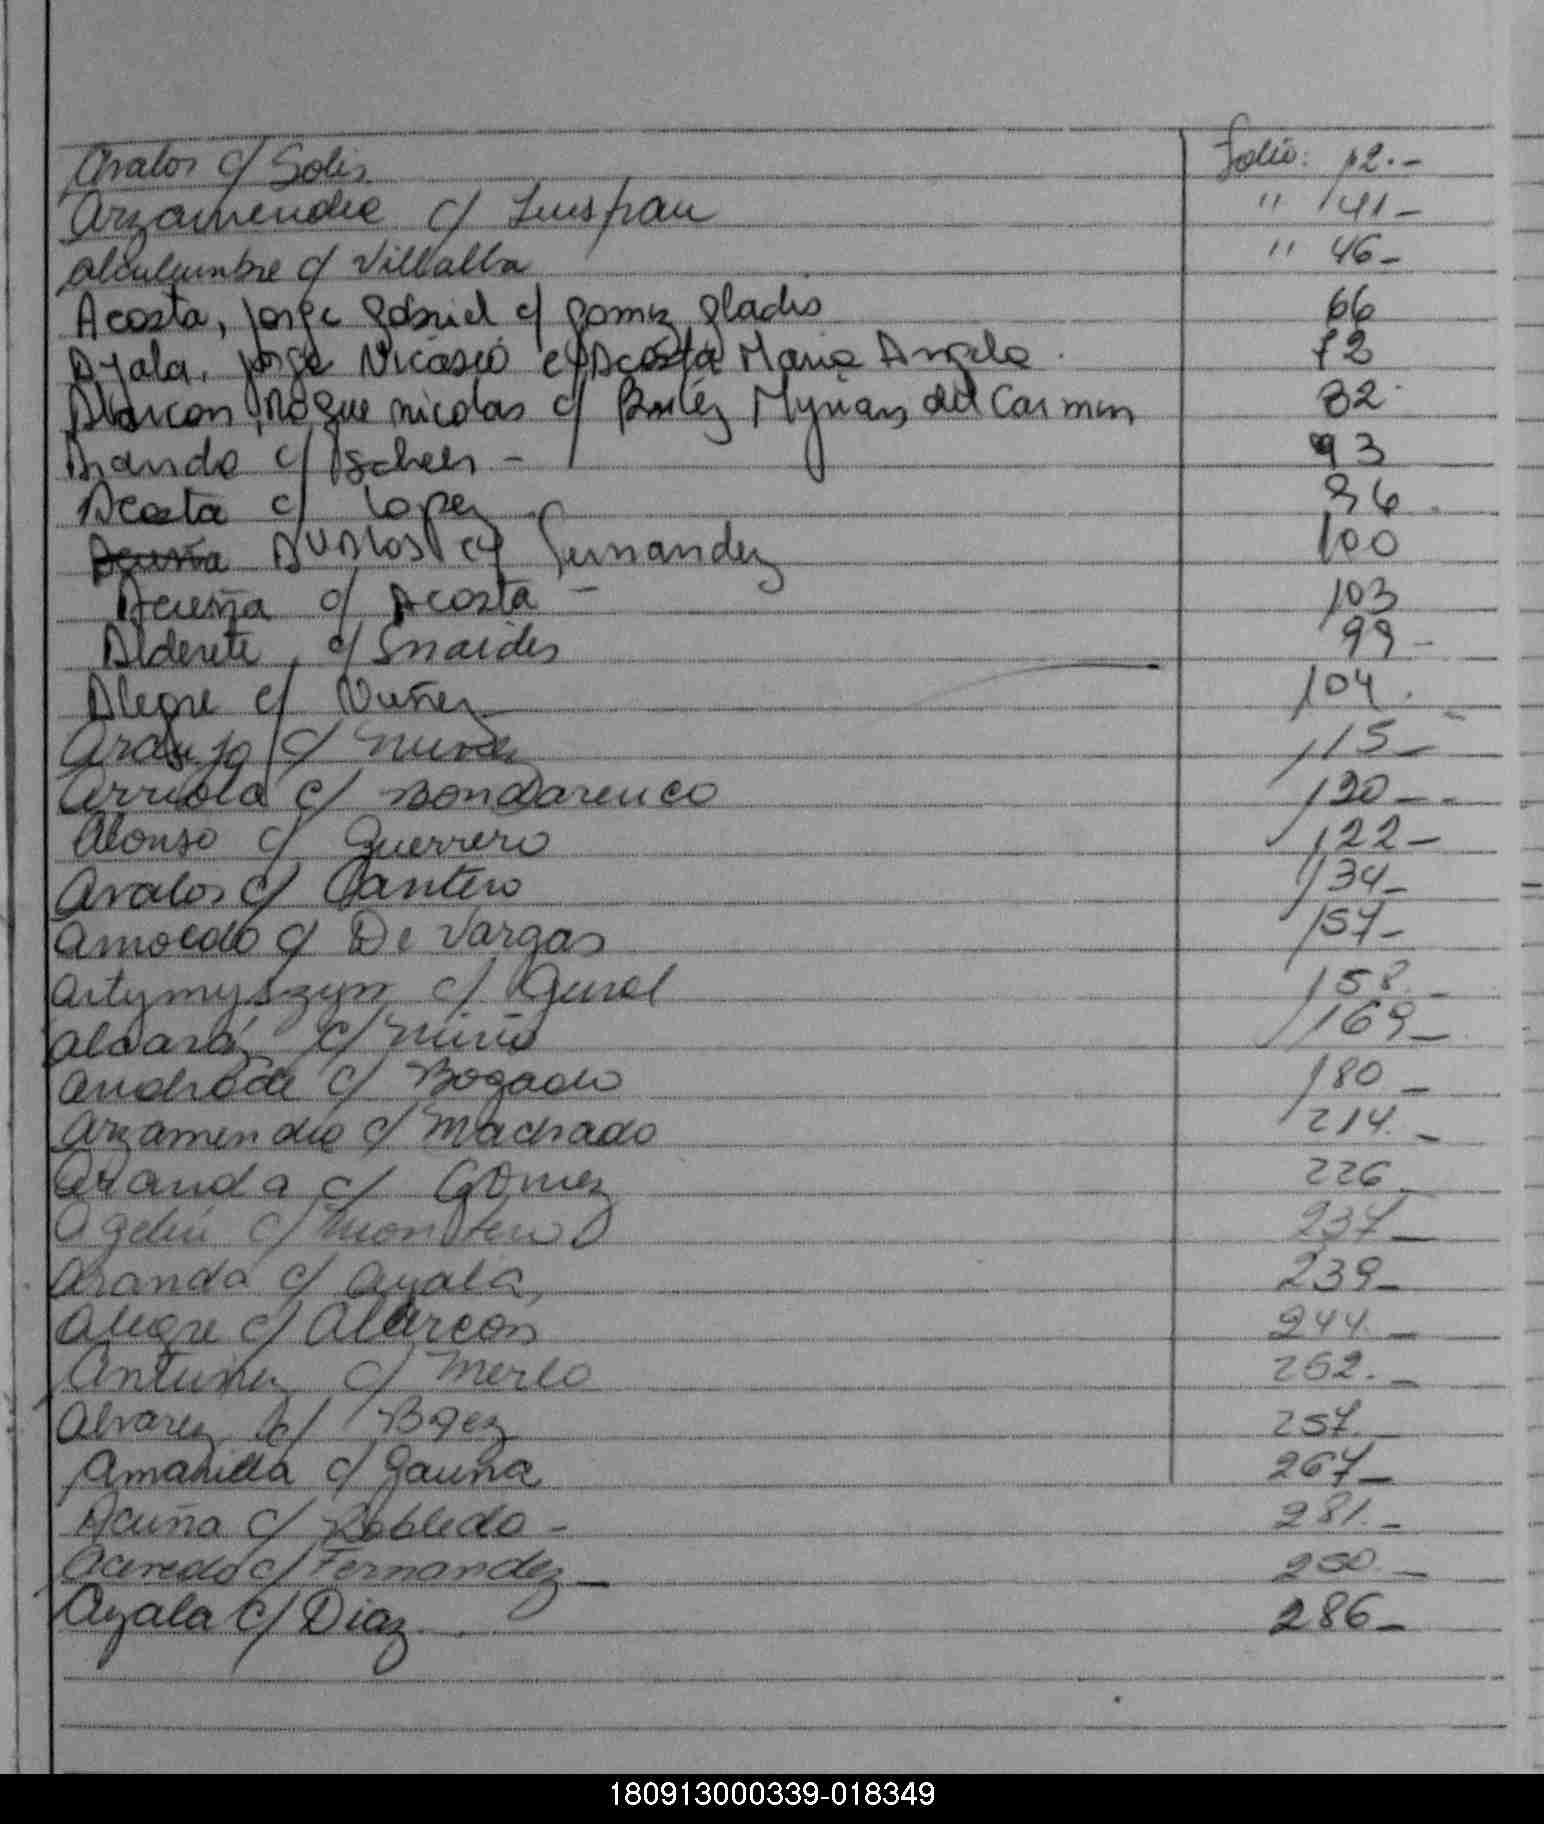 Avalos c/ Solis Folio: 12.-
Arzamendia c/ " 41-
c/ Villalba " 46-
Acosta, Jorge Gabriel c/ Gomez Gladis 66
Ayala, Jorge Nicasio c/ Acosta Maria Angela 72
Alarcon, Roque Nicolas c/ Myrian del Carmen 82
Aranda c/ 93
Acosta c/ Lopez 96
Acuña Avalos c/ Fernandez 100
Acuña c/ Acosta - 103
Alderete c/ Snaider 99-
Alegre c/ Nuñez 104.
Araujo c/ 115-
Arriola c/ Bondarenco 120--
Alonso c/ Guerrero 122-
Avalos c/ Cantero 134-
Amoedo c/ De Vargas 157-
Artymyszyn c/ 158.-
c/ Miño 169-
Andrade c/ Bogado 180-
Arzamendia c/ Machado 214.-
Aranda c/ Gomez 226
c/ Montero 237-
Aranda c/ Ayala 239-
Alegre c/ Alarcon 244.-
Antunez c/ Merlo 252.-
Alvarez c/ Baez 257.-
Amarilla c/ Gauna 267-
Acuña c/ Robledo - 281.-
Acevedo c/ Fernandez - 250.-
Ayala c/ Diaz 286-
180913000339-018349